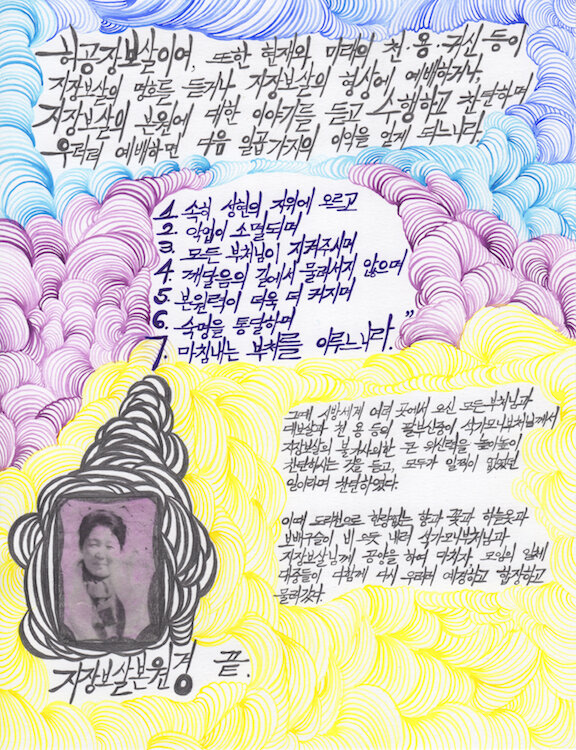 허공장보살이여, 또한 현재와 미래의 천·용·귀신 등이
지장보살의 명호를 듣거나 지장보살의 형상에 예배하거나,
지장보살의 본원에 대한 이야기를 듣고 수행하고 찬탄하며
우러러 예배하면 다음 일곱가지의 이익을 얻게 되느니라.
1. 속히 성현의 지위에 오르고
2. 악업이 소멸되며
3. 모든 부처님이 지켜주시며
4. 깨달음의 길에서 물러서지 않으며
5. 본원력이 더욱 더 커지며
6. 숙명을 통달하며
7. 마침내는 부처를 이루느니라."
그때, 시방세계 여러 곳에서 오신 모든부처님과
대보살과 천 용 등이 팔부신중이 석가모니부처님께서
지장보살의 불가사의한 큰 위신력을 높이높이
찬탄하시는 것을 듣고, 모두가 일찍이 없었던
일이라며 찬탄하였다.
이때 도리천으로 한량없는 향과 꽃과, 하늘옷과
보배구슬이 비 오듯 내려 석가모니부처님과
지장보살님께 공양을 하여 마치자 모임의 일체
대중들이 다함께 다시 우러러 예경하고 합장하고
물러갔다.
지장보살본원경 끝.